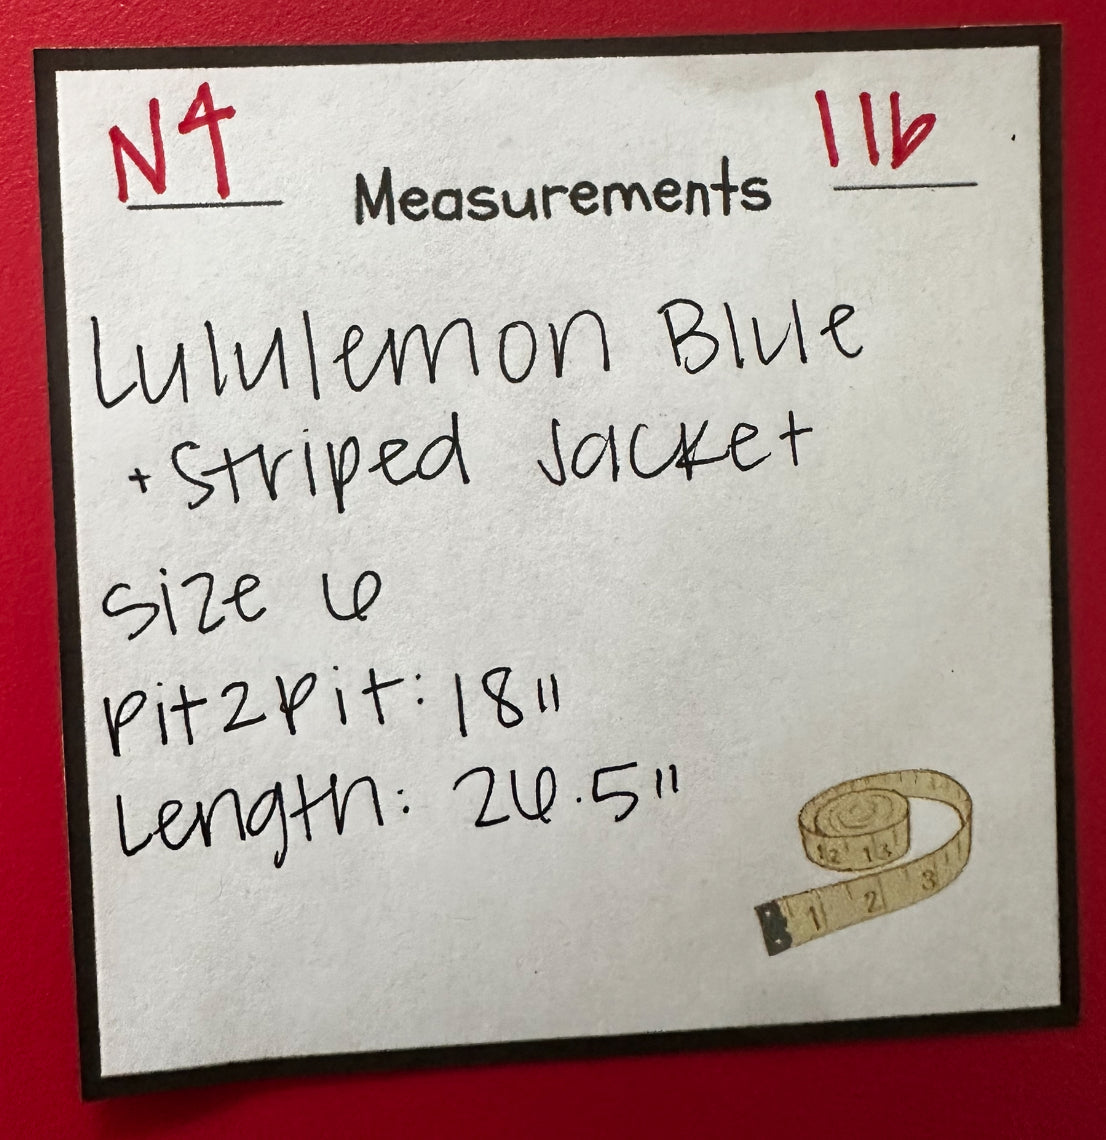 N4 11b
Measurements
Lululemon Blue
+ Striped Jacket
Size 6
Pit2Pit: 18"
Length: 26.5"
12 13
1 2 3